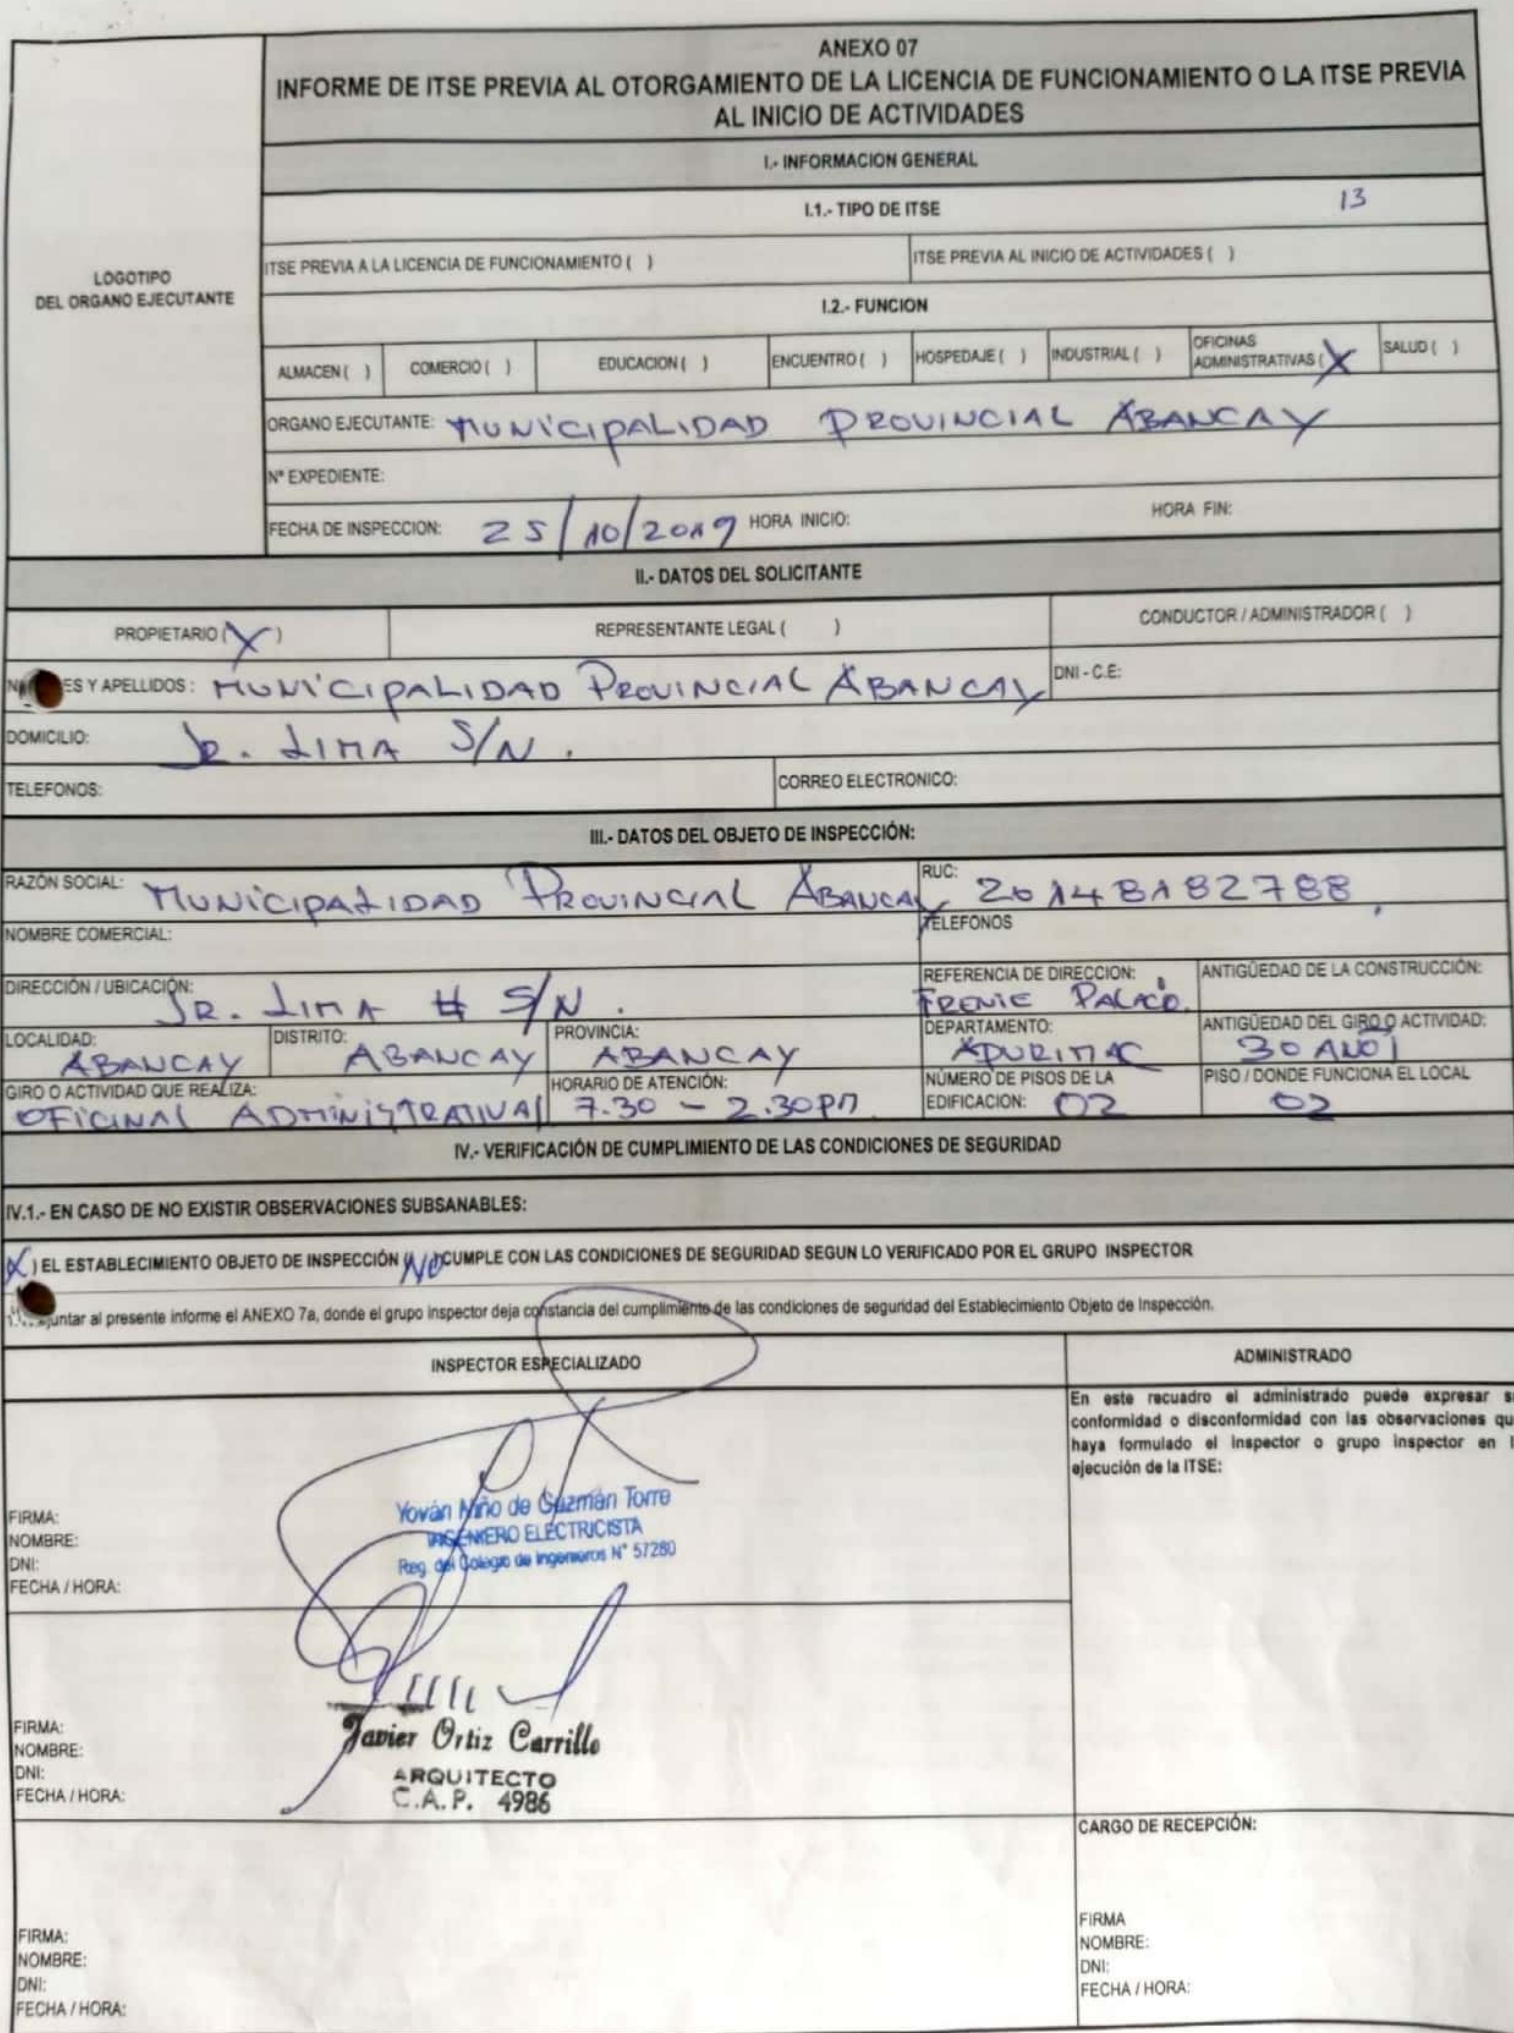 ANEXO 07
INFORME DE ITSE PREVIA AL OTORGAMIENTO DE LA LICENCIA DE FUNCIONAMIENTO O LA ITSE PREVIA
AL INICIO DE ACTIVIDADES
I.- INFORMACION GENERAL
I.1.- TIPO DE ITSE 13
LOGOTIPO
DEL ORGANO EJECUTANTE
ITSE PREVIA A LA LICENCIA DE FUNCIONAMIENTO ( ) ITSE PREVIA AL INICIO DE ACTIVIDADES ( )
I.2.- FUNCION
ALMACEN ( ) COMERCIO ( ) EDUCACION ( ) ENCUENTRO ( ) HOSPEDAJE ( ) INDUSTRIAL ( ) OFICINAS ADMINISTRATIVAS (X SALUD ( )
ORGANO EJECUTANTE: MUNICIPALIDAD PROVINCIAL ABANCAY
N° EXPEDIENTE:
FECHA DE INSPECCION: 25/10/2019 HORA INICIO: HORA FIN:
II.- DATOS DEL SOLICITANTE
PROPIETARIO (X) REPRESENTANTE LEGAL ( ) CONDUCTOR / ADMINISTRADOR ( )
ES Y APELLIDOS : MUNICIPALIDAD PROVINCIAL ABANCAY DNI - C.E:
DOMICILIO: JR. LIMA S/N.
TELEFONOS: CORREO ELECTRONICO:
III.- DATOS DEL OBJETO DE INSPECCIÓN:
RAZÓN SOCIAL: MUNICIPALIDAD PROVINCIAL ABANCAY RUC: 20148182788
NOMBRE COMERCIAL: TELEFONOS
DIRECCIÓN / UBICACIÓN: JR. LIMA # S/N. REFERENCIA DE DIRECCION: FRENTE PALACIO. ANTIGÜEDAD DE LA CONSTRUCCIÓN:
LOCALIDAD: ABANCAY DISTRITO: ABANCAY PROVINCIA: ABANCAY DEPARTAMENTO: APURIMAC ANTIGÜEDAD DEL GIRO O ACTIVIDAD: 30 AÑOS
GIRO O ACTIVIDAD QUE REALIZA: OFICINAS ADMINISTRATIVAS HORARIO DE ATENCIÓN: 7.30 - 2.30PM NÚMERO DE PISOS DE LA EDIFICACION: 02 PISO / DONDE FUNCIONA EL LOCAL 02
IV.- VERIFICACIÓN DE CUMPLIMIENTO DE LAS CONDICIONES DE SEGURIDAD
IV.1.- EN CASO DE NO EXISTIR OBSERVACIONES SUBSANABLES:
X) EL ESTABLECIMIENTO OBJETO DE INSPECCIÓN (NO) CUMPLE CON LAS CONDICIONES DE SEGURIDAD SEGUN LO VERIFICADO POR EL GRUPO INSPECTOR
juntar al presente informe el ANEXO 7a, donde el grupo inspector deja constancia del cumplimiento de las condiciones de seguridad del Establecimiento Objeto de Inspección.
INSPECTOR ESPECIALIZADO
FIRMA:
NOMBRE:
DNI:
FECHA / HORA:
Yován Niño de Guzmán Torre
INGENIERO ELECTRICISTA
Reg. del Colegio de Ingenieros N° 57280
FIRMA:
NOMBRE:
DNI:
FECHA / HORA:
Javier Ortiz Carrillo
ARQUITECTO
C.A.P. 4986
FIRMA:
NOMBRE:
DNI:
FECHA / HORA:
ADMINISTRADO
En este recuadro el administrado puede expresar s
conformidad o disconformidad con las observaciones qu
haya formulado el inspector o grupo inspector en l
ejecución de la ITSE:
CARGO DE RECEPCIÓN:
FIRMA
NOMBRE:
DNI:
FECHA / HORA: